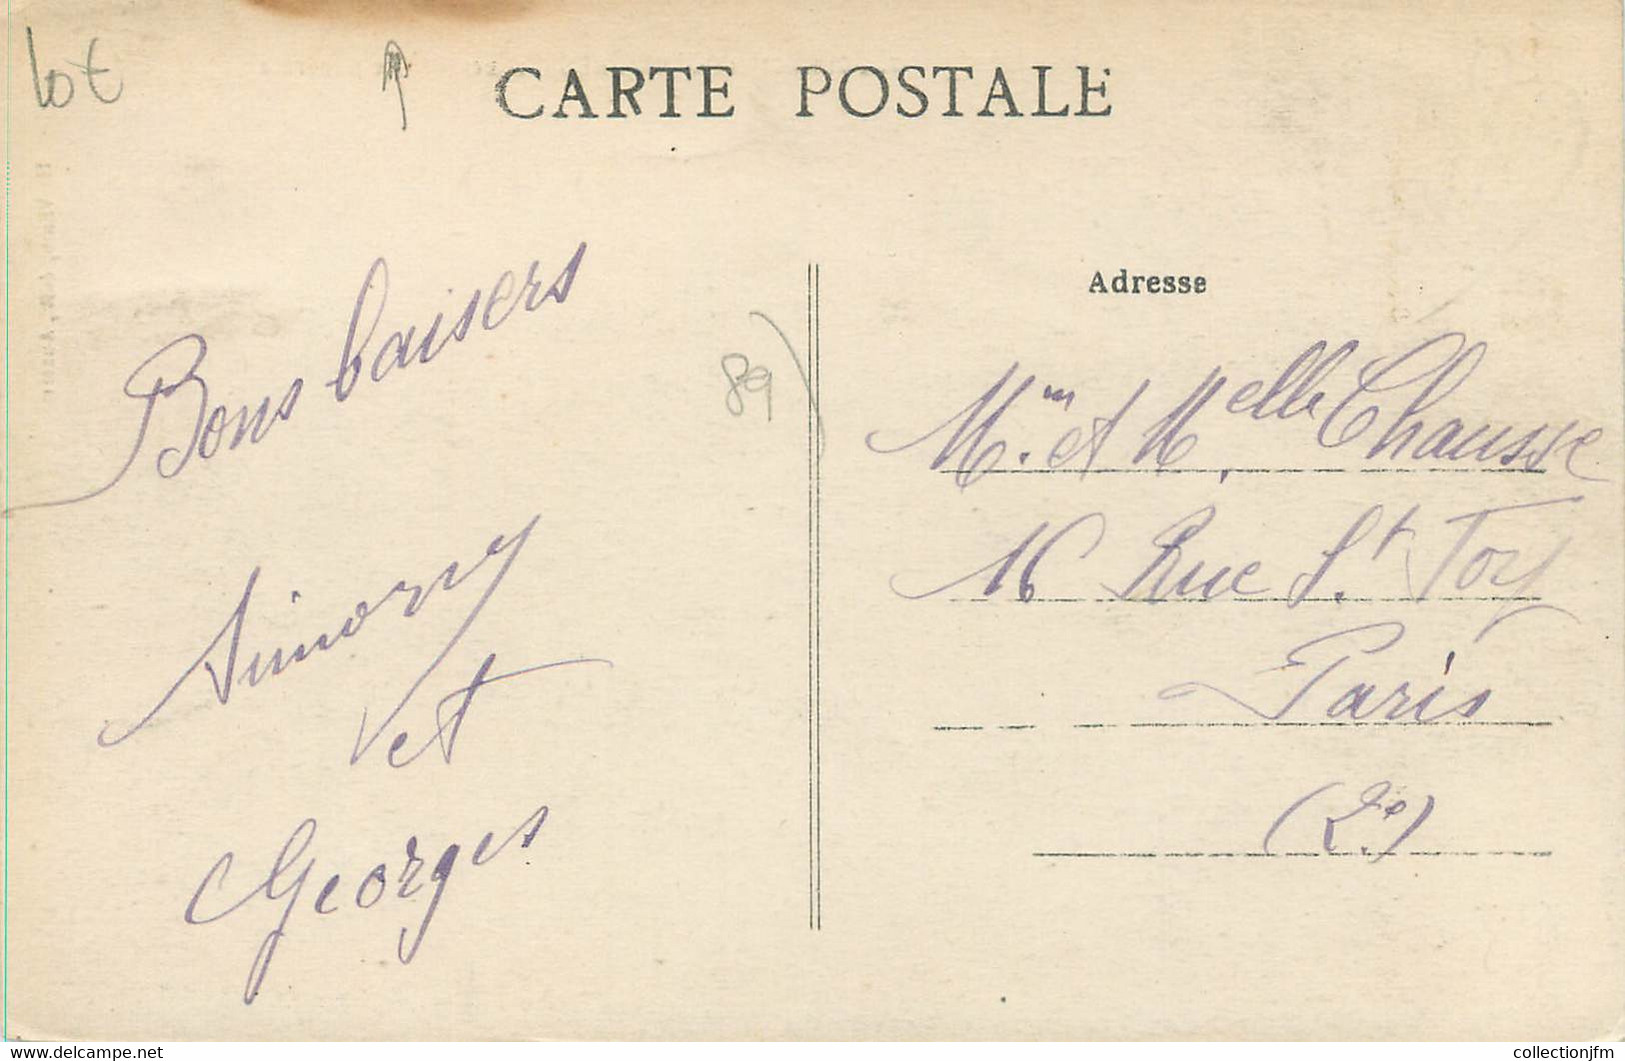 10€
CARTE POSTALE
Bons baisers
Simony
et
Georges
89)
Adresse
Mm. et Melle Chausse
16 Rue St. Foy
Paris
(2e)
www.delcampe.net
collectionjfm